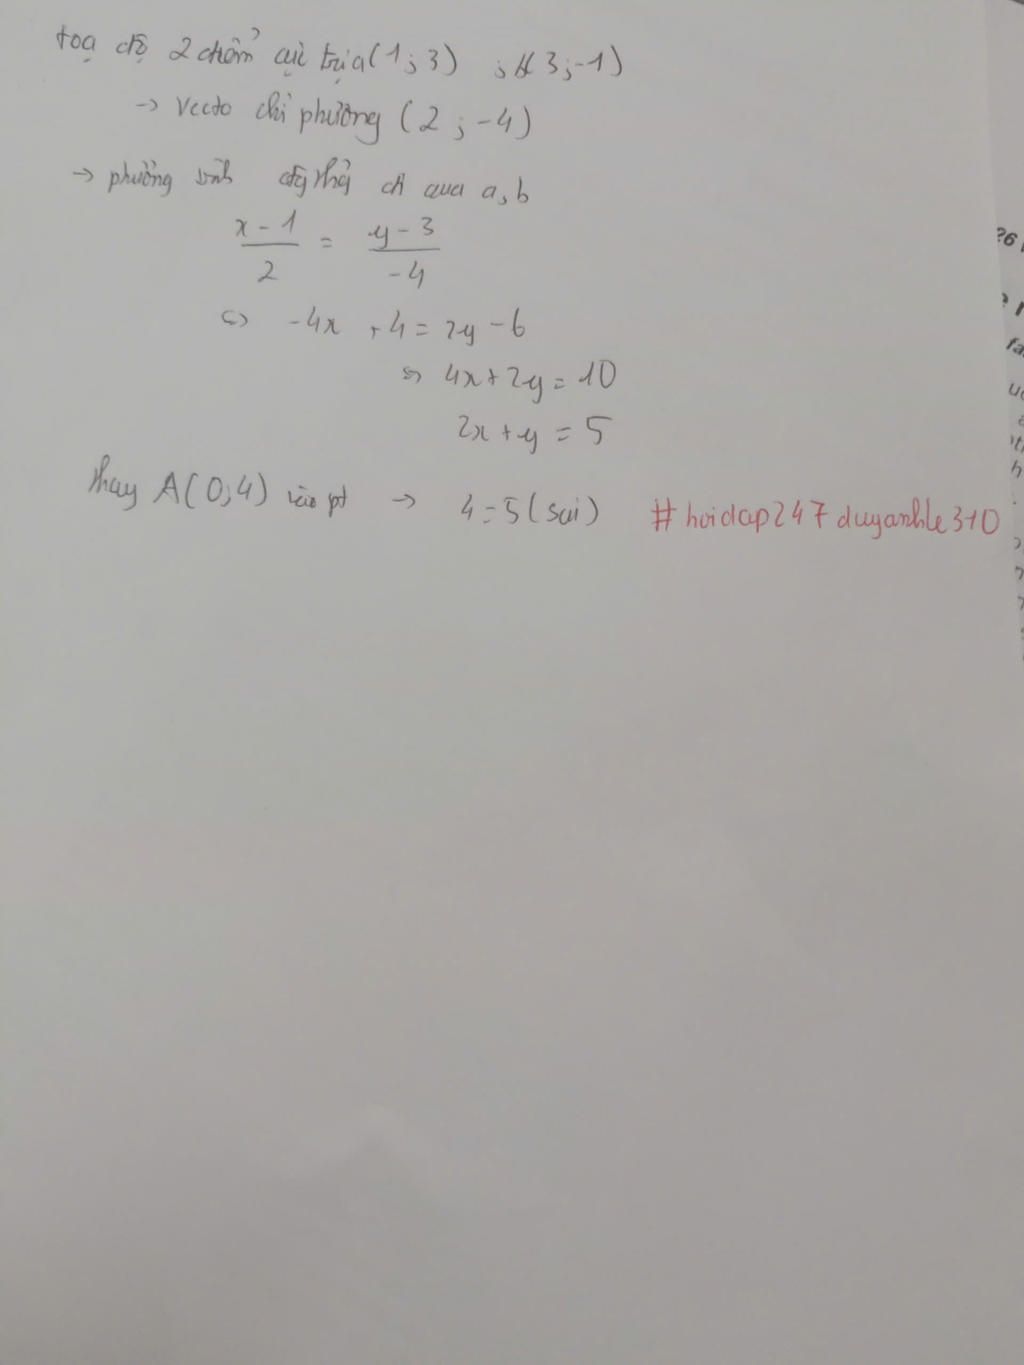 toạ độ 2 điểm cực trị a(1;3) ; b(3;-1)
→ Vecto chỉ phương (2;-4)
→ phương trình đg thẳng đi qua a,b
x-1/2 = y-3/-4
⇔ -4x +4 = 2y -6
⇔ 4x+2y = 10
2x+y = 5
thay A(0;4) vào pt → 4=5 (sai) #hoidap247duyanhle310
26